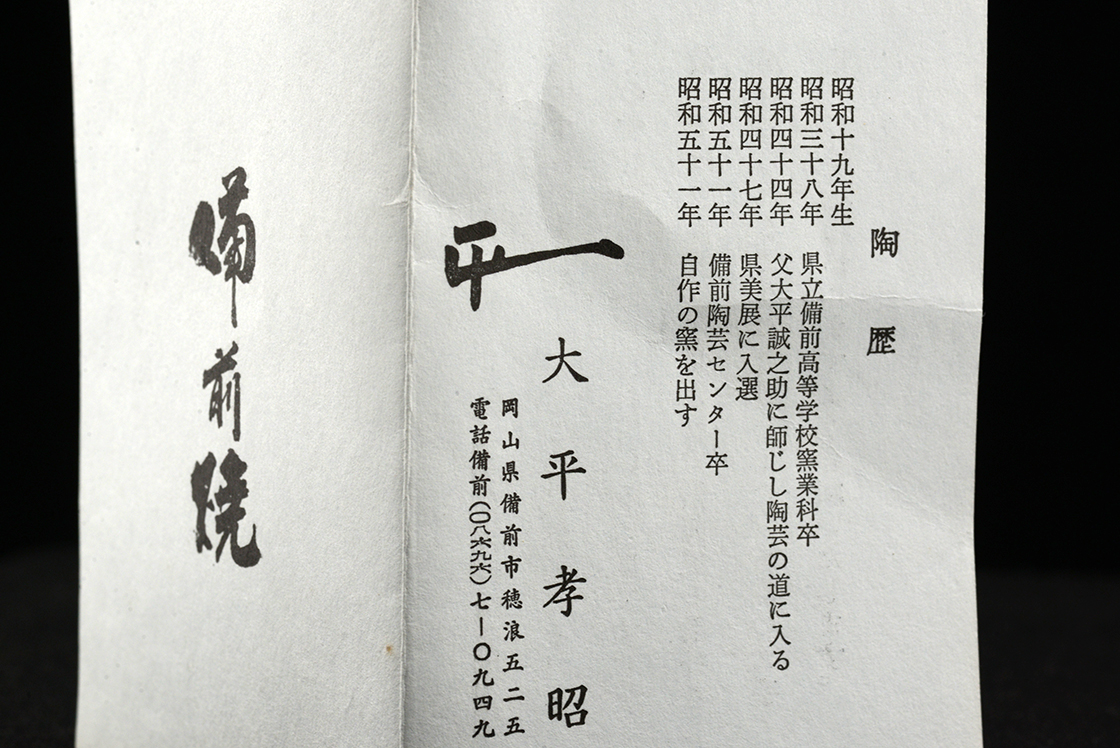 陶歴
昭和十九年生
昭和三十八年 県立備前高等学校窯業科卒
昭和四十四年 父大平誠之助に師じし陶芸の道に入る
昭和四十七年 県美展に入選
昭和五十一年 備前陶芸センター卒
昭和五十一年 自作の窯を出す
大平孝昭
岡山県備前市穂浪五二五
電話備前(〇八六九六)七―〇九四九
備前焼